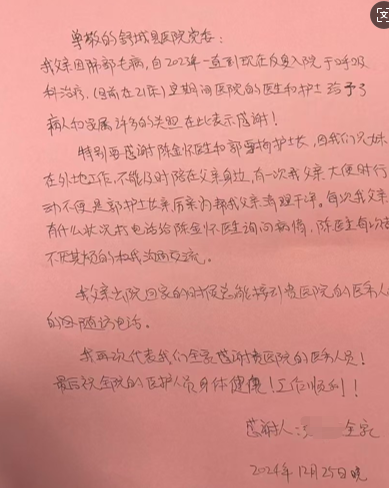 尊敬的舒城县医院党委:
我父亲因肺部老病,自2023年一直到现在反复入院于呼吸
科治疗.(目前在21床)至期间医院的医生和护士给予了
病人和家属许多的关照在此表示感谢!
特别要感谢陈金怀医生和郭 护士长,因我们兄妹
在外地工作,不能及时陪在父亲身边,有一次我父亲大便时行
动不便是郭护士长亲历亲为帮我父亲清理干净。每次我父亲
有什么状况打电话给陈金怀医生询问病情,陈医生每次
不厌其烦的和我沟通交流。
我父亲出院回家的时候总能接到贵医院的医务人
的回随访电话。
我再次代表我们全家感谢贵医院的医务人员!
最后祝全院的医护人员身体健康!工作顺利!!
感谢人: 全家
2024年12月25日晚